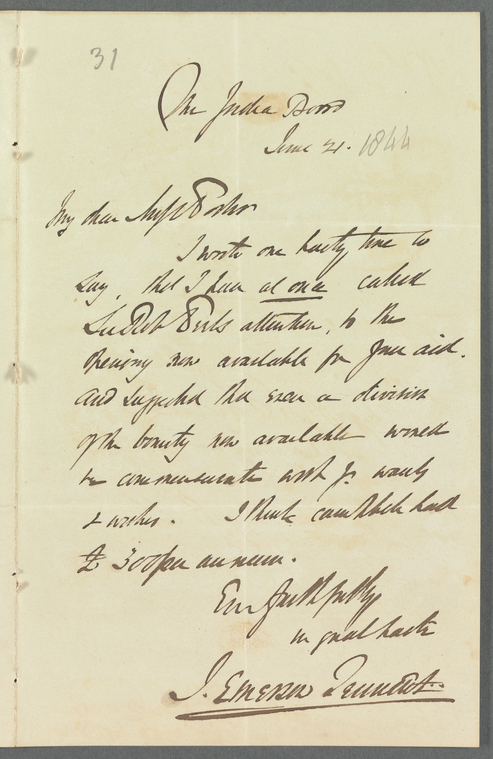 31
The India Board
June 21. 1844
My dear Miss Porter
I wrote one hasty line to
say, that I have at once called
Sir Rob Peels attention, to the
opening now available for your aid.
and suggested that even a division
of the bounty now available would
be commensurate with yr wants
& wishes. I think Campbell had
£300 per annum.
Ever faithfully
in great haste
J. Emerson Tennent.